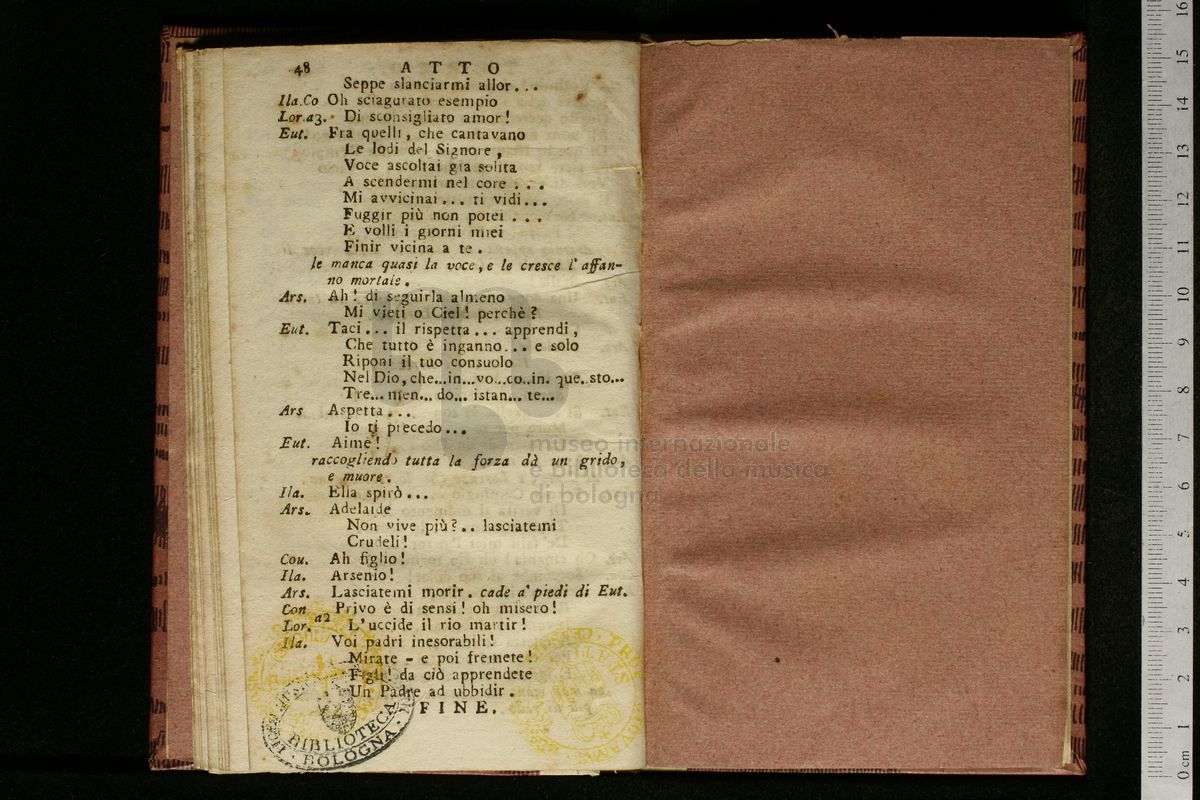 48 ATTO
Seppe slanciarmi allor...
Ila.Co Oh sciagurato esempio
Lor.a3. Di sconsigliato amor!
Eut. Fra quelli, che cantavano
Le lodi del Signore,
Voce ascoltai gia solita
A scendermi nel core...
Mi avvicinai... ti vidi...
Fuggir più non potei...
E volli i giorni miei
Finir vicina a te.
le manca quasi la voce, e le cresce l'affan-
no mortale.
Ars. Ah! di seguirla almeno
Mi vieti o Ciel! perchè?
Eut. Taci... il rispetta... apprendi,
Che tutto è inganno... e solo
Riponi il tuo consuolo
Nel Dio, che...in...vo...co..in. que..sto...
Tre... men... do... istan... te...
Ars Aspetta...
Io ti precedo...
Eut. Aimè!
raccogliendo tutta la forza dà un grido,
e muore.
Ila. Ella spirò...
Ars. Adelaide
Non vive più?.. lasciatemi
Crudeli!
Cou. Ah figlio!
Ila. Arsenio!
Ars. Lasciatemi morir. cade a' piedi di Eut.
Con Privo è di sensi! oh misero!
Lor. a2 L'uccide il rio martir!
Ila. Voi padri inesorabili!
Mirate - e poi fremete!
Figli! da ciò apprendete
Un Padre ad ubbidir.
FINE.
BIBLIOTECA
BOLOGNA
museo internazionale
e biblioteca della musica
di bologna
0 cm 1 2 3 4 5 6 7 8 9 10 11 12 13 14 15 16